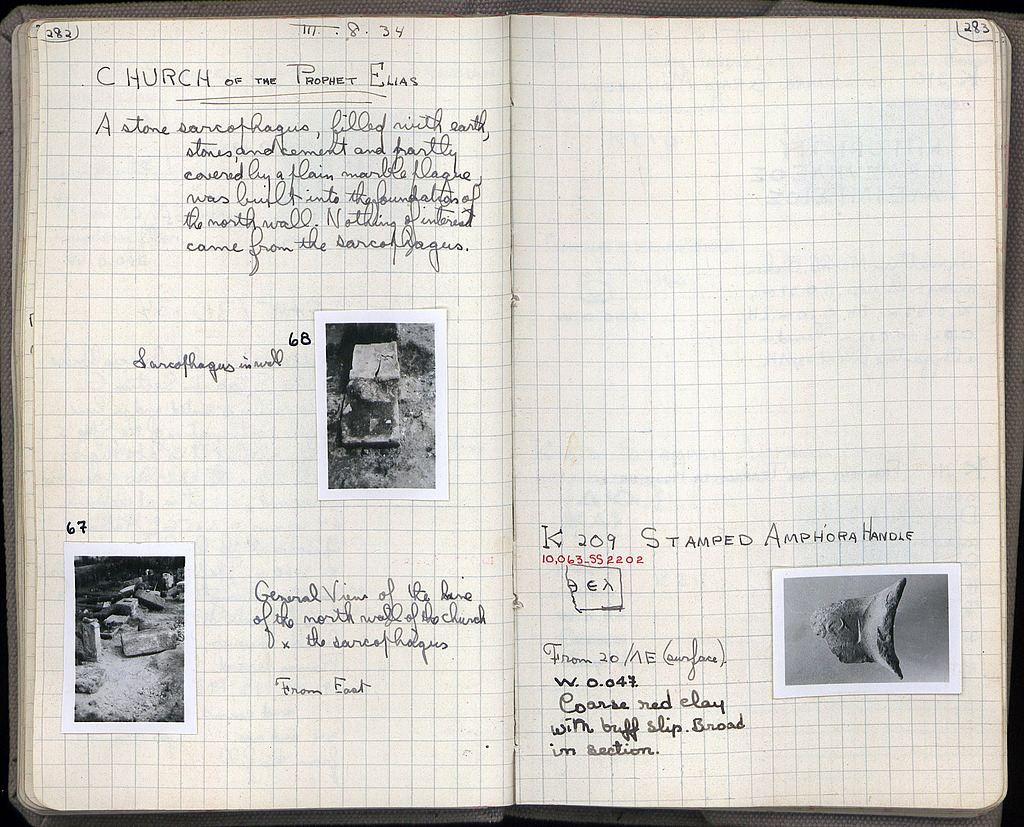 282
III. 8. 34
CHURCH OF THE PROPHET ELIAS
A stone sarcophagus, filled with earth,
stones, and cement and partly
covered by a plain marble plaque,
was built into the foundations of
the north wall. Nothing of interest
came from the sarcophagus.
68
Sarcophagus in wall
67
General View of the line
of the north wall of the church
x the sarcophagus
From East
283
K 209 STAMPED AMPHORA HANDLE
10,063-SS 2202
Θ Ε λ
From 20/ΛΕ (surface).
W. 0.047.
Coarse red clay
with buff slip. Broad
in section.